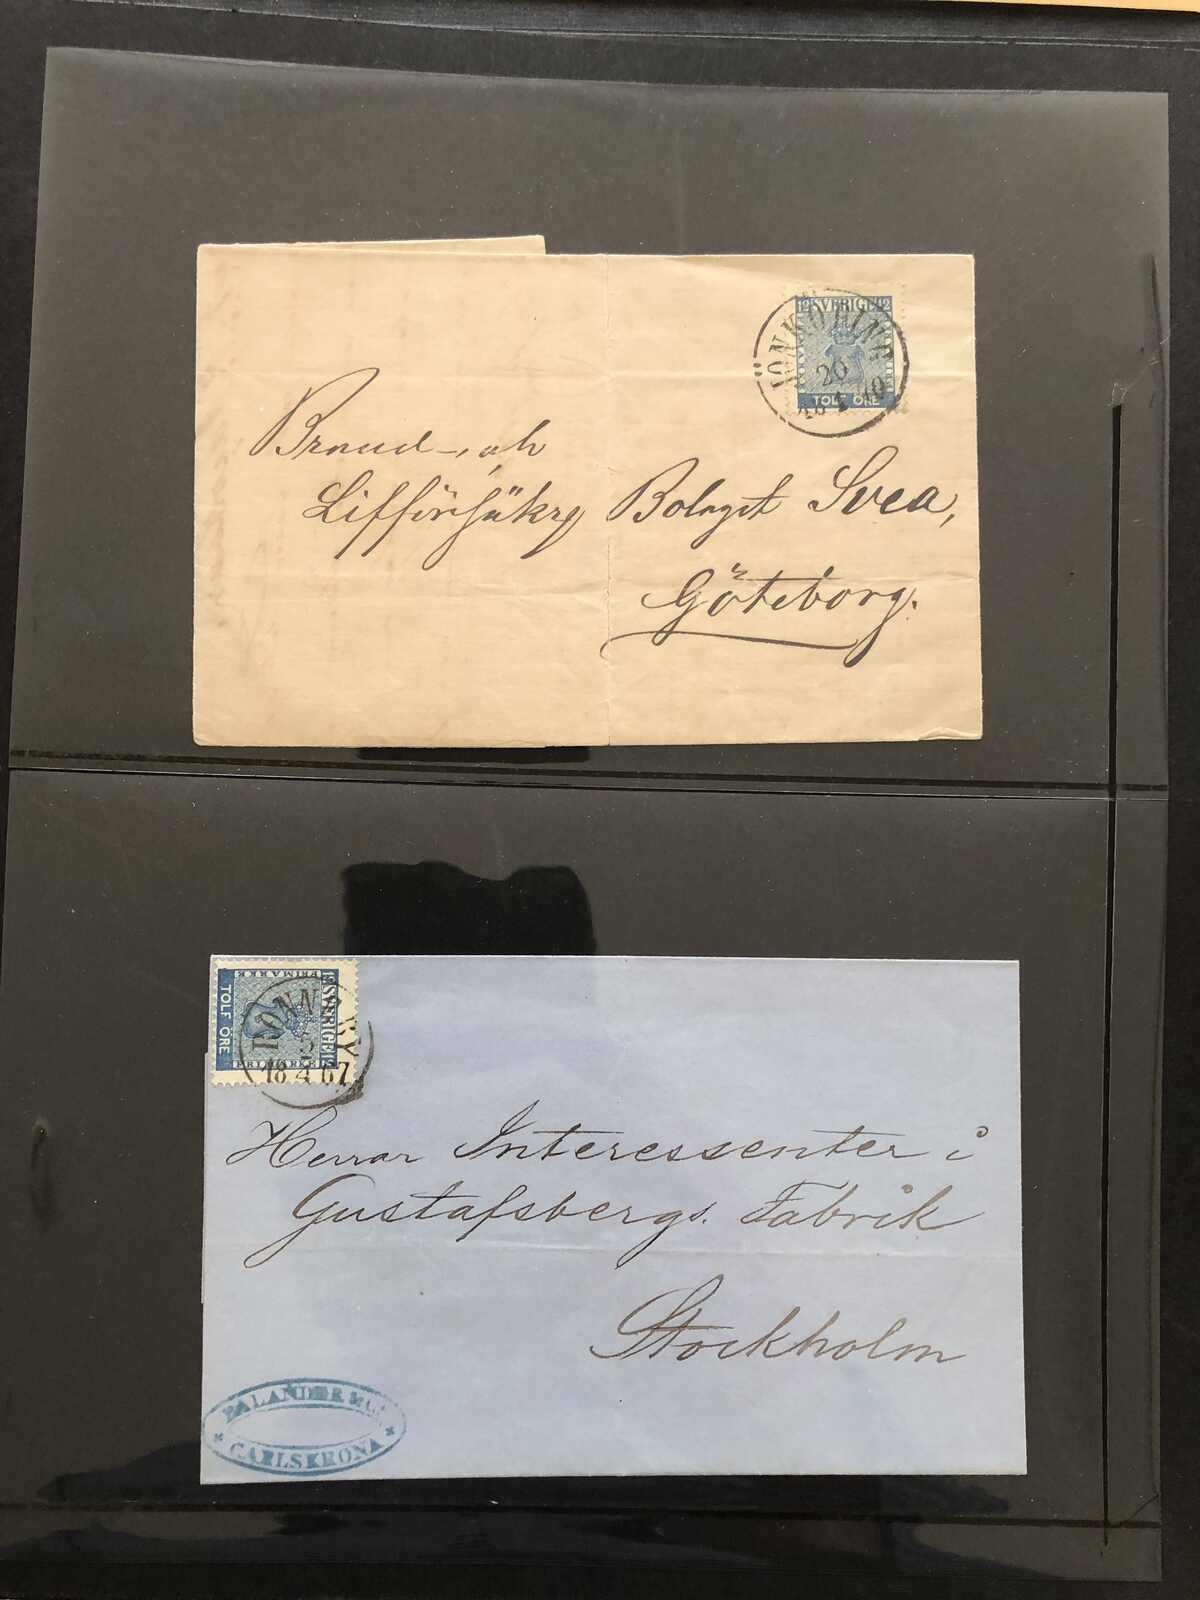 12 SVERIGE 12
JÖNKÖPING
20
TOLF ÖRE
Brand-, och
Lifförsäkrgs
Bolaget Svea,
Göteborg.
12 SVERIGE 12
FRIMÄRKE
FRIMÄRKE
TOLF ÖRE
RONNEBY
18 4 67
Herrar Interessenter i
Gustafsbergs. Fabrik
Stockholm
PALANDER & C.
* CARLSKRONA *